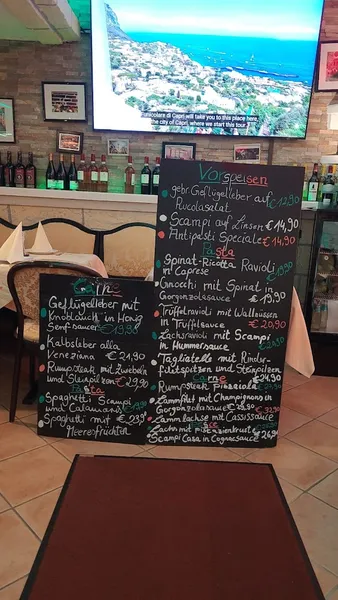 funicolare di Capri will take you to this place here,
the city of Capri, where we start this tour
Vorspeisen
gebr. Geflügelleber auf
Rucolasalat €12,90
Scampi auf Linsen €14,90
Antipasti Speciale €14,90
Pasta
Spinat-Ricotta Ravioli
in Caprese
Gnocchi mit Spinat in
Gorgonzolasauce €19,90
Trüffelravioli mit Wallnüssen
in Trüffelsauce €20,90
Lachsravioli mit Scampi
in Hummersauce
Tagliatelle mit Rinder-
filetspitzen und Steinpilzen
€24,90
Carne
Rumpsteak Pizzaiola
Lammfilet mit Champignons in
Gorgonzolasauce €29,90
Lammlachse mit Cassissauce €32,90
Pesce
Lachs mit Pistazienkruste
Scampi Casa in Cognacsauce €26,90
Carne
Geflügelleber mit
Knoblauch in Honig
Senfsauce €19,90
Kalbsleber alla
Veneziana €24,90
Rumpsteak mit Zwiebeln
und Steinpilzen €29,90
Pasta
Spaghetti Scampi
und Calamari
Spaghetti mit €23,90
Meeresfrüchten